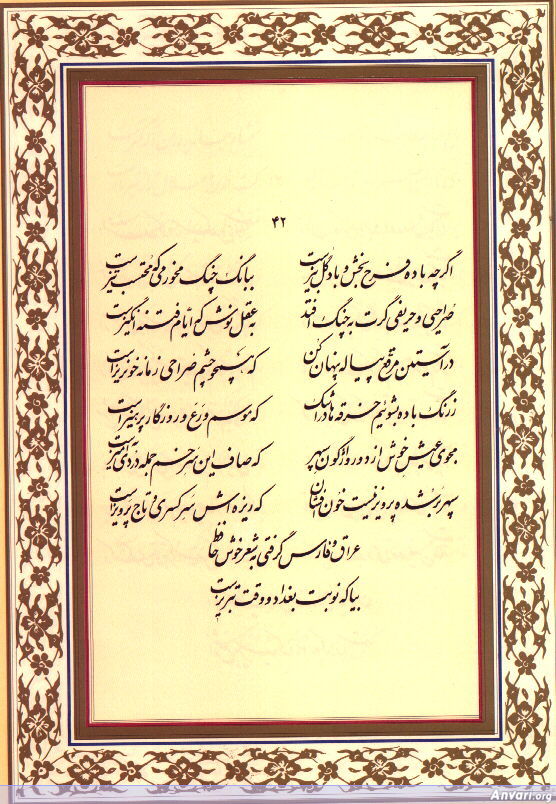 ۴۲
اگرچه باده فرح بخش و باد گل بیزست ببانگ چنگ مخور می که محتسب تیزست
صراحی و حریفی گرت به چنگ افتد به عقل نوش که ایام فتنه انگیزست
در آستین مرقع پیاله پنهان کن که همچو چشم صراحی زمانه خونریزست
ز رنگ باده بشوئیم خرقه ها در اشک که موسم ورع و روزگار پرهیزست
مجوی عیش خوش از دور واژگون سپهر که صاف این سر خم جمله دردی آمیزست
سپهر بر شده پرویز نیست خون افشان که ریزه اش سر کسری و تاج پرویزست
عراق و فارس گرفتی به شعر خوش حافظ
بیا که نوبت بغداد و وقت تبریزست
Anvari.org